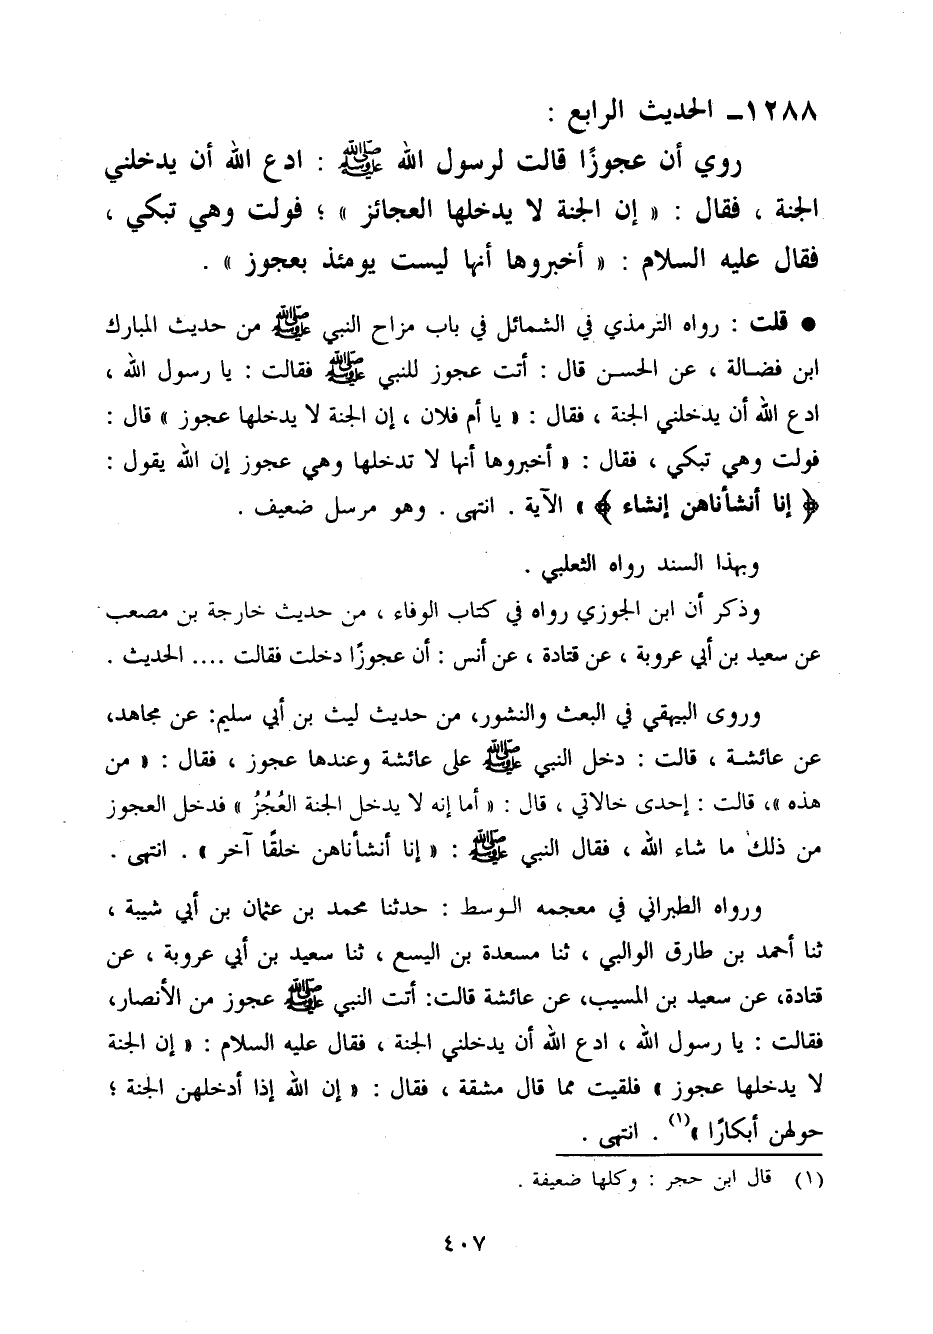 ١٢٨٨ـ الحديث الرابع :
روي أن عجوزًا قالت لرسول الله ﷺ : ادع الله أن يدخلني
الجنة ، فقال : « إن الجنة لا يدخلها العجائز » ؛ فولت وهي تبكي ،
فقال عليه السلام : « أخبروها أنها ليست يومئذ بعجوز » .
● قلت : رواه الترمذي في الشمائل في باب مزاح النبي ﷺ من حديث المبارك
ابن فضـالة ، عن الحسـن قال : أتت عجوز للنبي ﷺ فقالت : يا رسول الله ،
ادع الله أن يدخلني الجنة ، فقال : « يا أم فلان ، إن الجنة لا يدخلها عجوز » قال :
فولت وهي تبكي ، فقال : « أخبروها أنها لا تدخلها وهي عجوز إن الله يقول :
﴿ إنا أنشأناهن إنشاء ﴾ » الآية . انتهى . وهو مرسل ضعيف .
وبهذا السند رواه الثعلبي .
وذكر أن ابن الجوزي رواه في كتاب الوفاء ، من حديث خارجة بن مصعب
عن سعيد بن أبي عروبة ، عن قتادة ، عن أنس : أن عجوزًا دخلت فقالت .... الحديث .
وروى البيهقي في البعث والنشور، من حديث ليث بن أبي سليم: عن مجاهد،
عن عائشـة ، قالت : دخل النبي ﷺ على عائشة وعندها عجوز ، فقال : « من
هذه »، قالت : إحدى خالاتي ، قال : « أما إنه لا يدخل الجنة العُجُزُ » فدخل العجوز
من ذلك ما شاء الله ، فقال النبي ﷺ : « إنا أنشأناهن خلقًا آخر » . انتهى .
ورواه الطبراني في معجمه الـوسط : حدثنا محمد بن عثمان بن أبي شيبة ،
ثنا أحمد بن طارق الوالبي ، ثنا مسعدة بن اليسع ، ثنا سعيد بن أبي عروبة ، عن
قتادة، عن سعيد بن المسيب، عن عائشة قالت: أتت النبي ﷺ عجوز من الأنصار،
فقالت : يا رسول الله ، ادع الله أن يدخلني الجنة ، فقال عليه السلام : « إن الجنة
لا يدخلها عجوز » فلقيت مما قال مشقة ، فقال : « إن الله إذا أدخلهن الجنة ؛
حولهن أبكارًا »(١) . انتهى .
(١) قال ابن حجر : وكلها ضعيفة .
٤٠٧